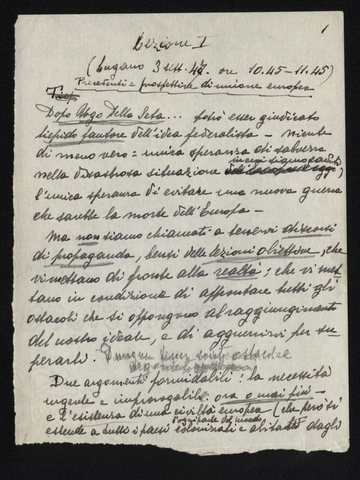 1
Lezione I
(Lugano 3 sett. 47. ore 10.45–11.45)
Precedenti e prospettive di unione europea
Dopo Ugo Della Seta... potrò esser giudicato
tiepido fautore dell'idea federalista – Niente
di meno vero: unica speranza di salvezza
nella disastrosa situazione in cui siamo caduti
l'unica speranza di evitare una nuova guerra
che sarebbe la morte dell'Europa –
Ma non siamo chiamati a tenervi discorsi
di propaganda, bensì delle lezioni obiettive, che
vi mettano di fronte alla realtà; che vi met-
tano in condizione di affrontare tutti gli
ostacoli che si oppongono al raggiungimento
del nostro ideale, e di agguerrirvi per su-
perarli.
Due argomenti formidabili: la necessità
urgente e improrogabile: ora o mai più –
e l'esistenza di una civiltà europea (che però si
estende a tutti i paesi colonizzati e abitati dagli